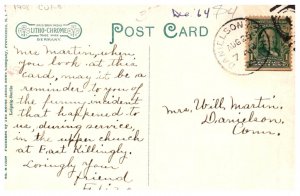 Dec '64
LITHO-CHROME
GERMANY.
POST CARD
DANIELSON
AUG
7
Mrs Martin, when
you look at this
card, may it be a
reminder to you
of the funny incident
that happened to
us, during service,
in the upper church
at East Killingly.
Lovingly your
friend
Mrs. Will Martin.
Danielson
Conn.